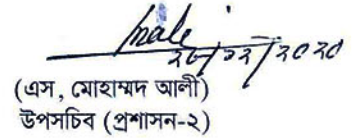 ২৮/১২/২০২০
(এস, মোহাম্মদ আলী)
উপসচিব (প্রশাসন-২)